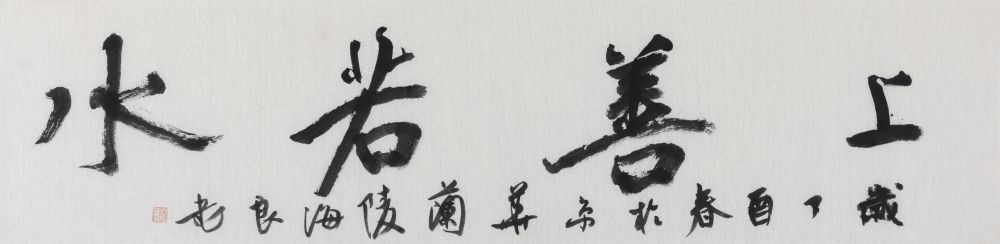 上善若水
歲丁酉春於京華蘭陵海良书